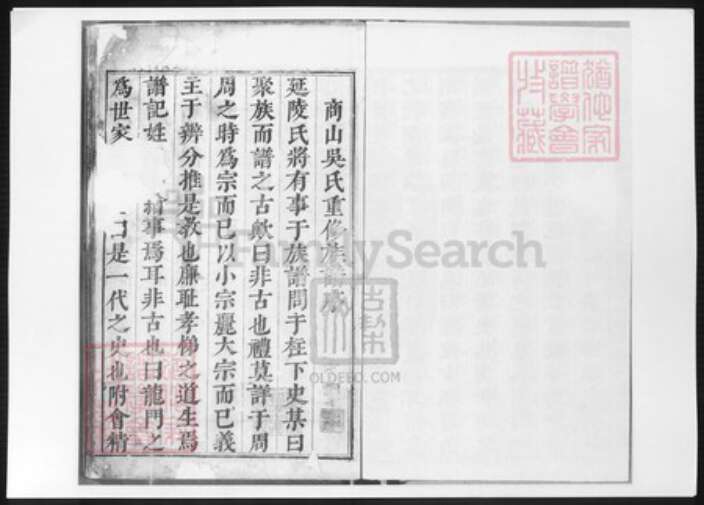 商山吳氏重修族譜序
延陵氏將有事于族譜問于柱下史某曰
聚族而譜之古歟曰非古也禮莫詳于周
周之時爲宗而已以小宗麗大宗而已義
主于辨分推是教也廉耻孝悌之道生焉
譜記姓 事爲耳非古也曰龍門之
爲世家 是一代之史也附會精
譜學會
收藏
FamilySearch
OLDEED.COM